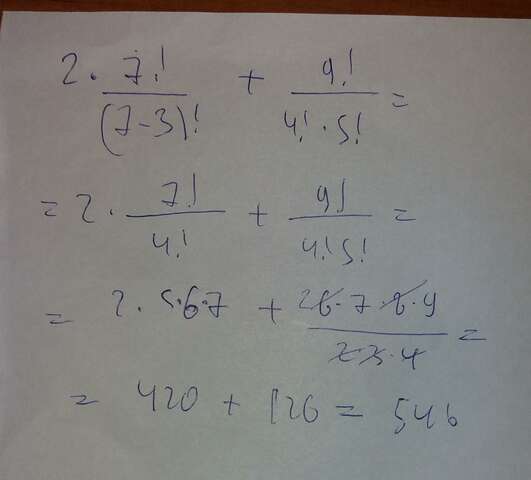 2 · 7! / (7-3)! + 9! / 4! · 5! =
= 2 · 7! / 4! + 9! / 4! 5! =
= 2 · 5·6·7 + 2 6 · 7 · 8 · 9 / 2 · 3 · 4 =
= 420 + 126 = 546